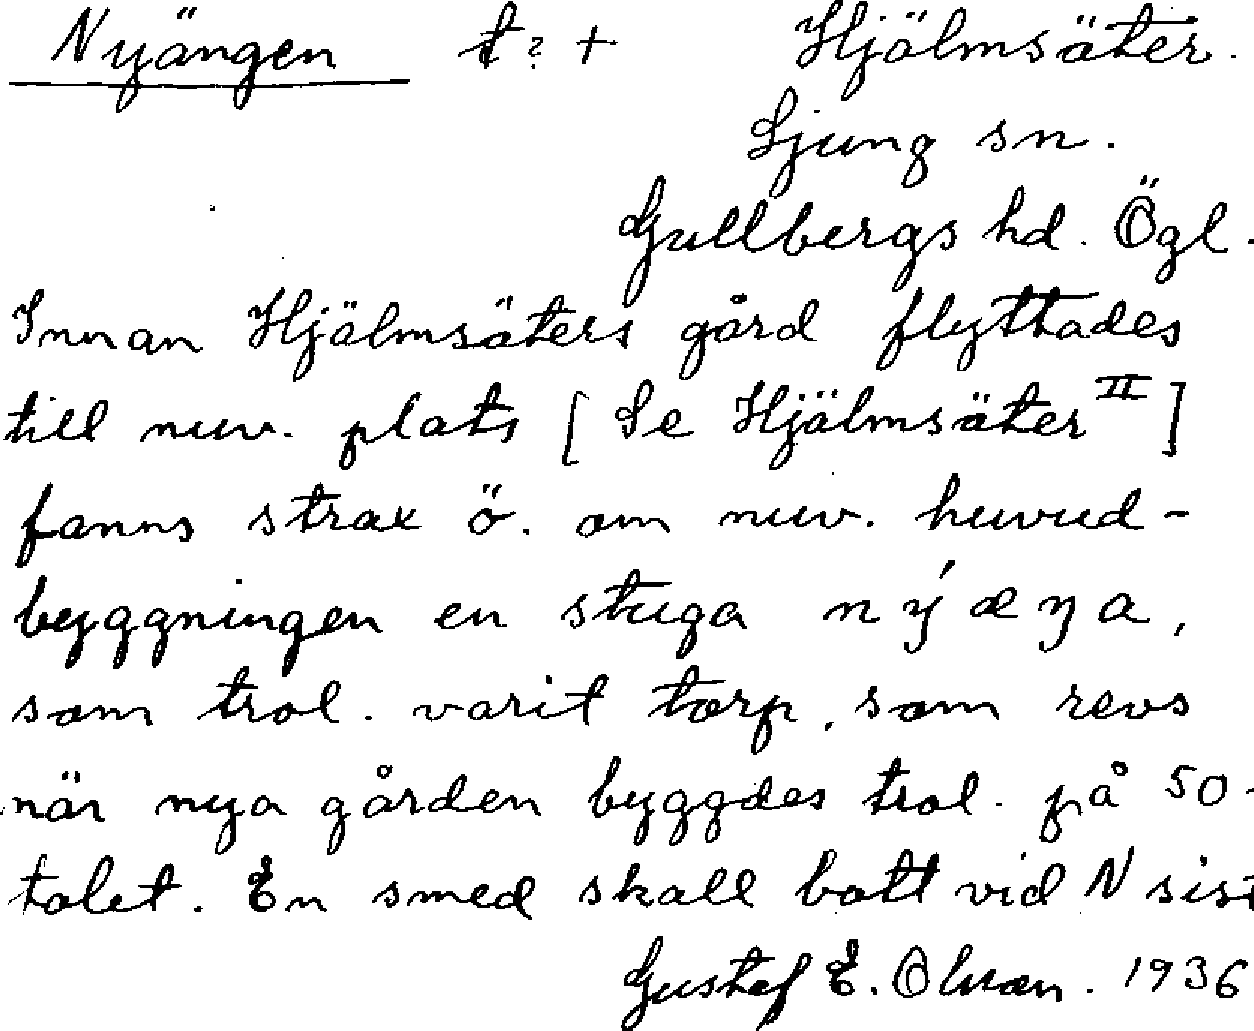 Nyängen t? + Hjälmsäter.
Ljung sn.
Gullbergs hd. Ögl.
Innan Hjälmsäters gård flyttades
till nuv. plats [Se Hjälmsäter II]
fanns strax ö. om nuv. huvud-
byggningen en stuga nýæŋa,
som trol. varit torp, som revs
när nya gården byggdes trol. på 50-
talet. En smed skall bott vid N sist
Gustaf E. Olsson. 1936